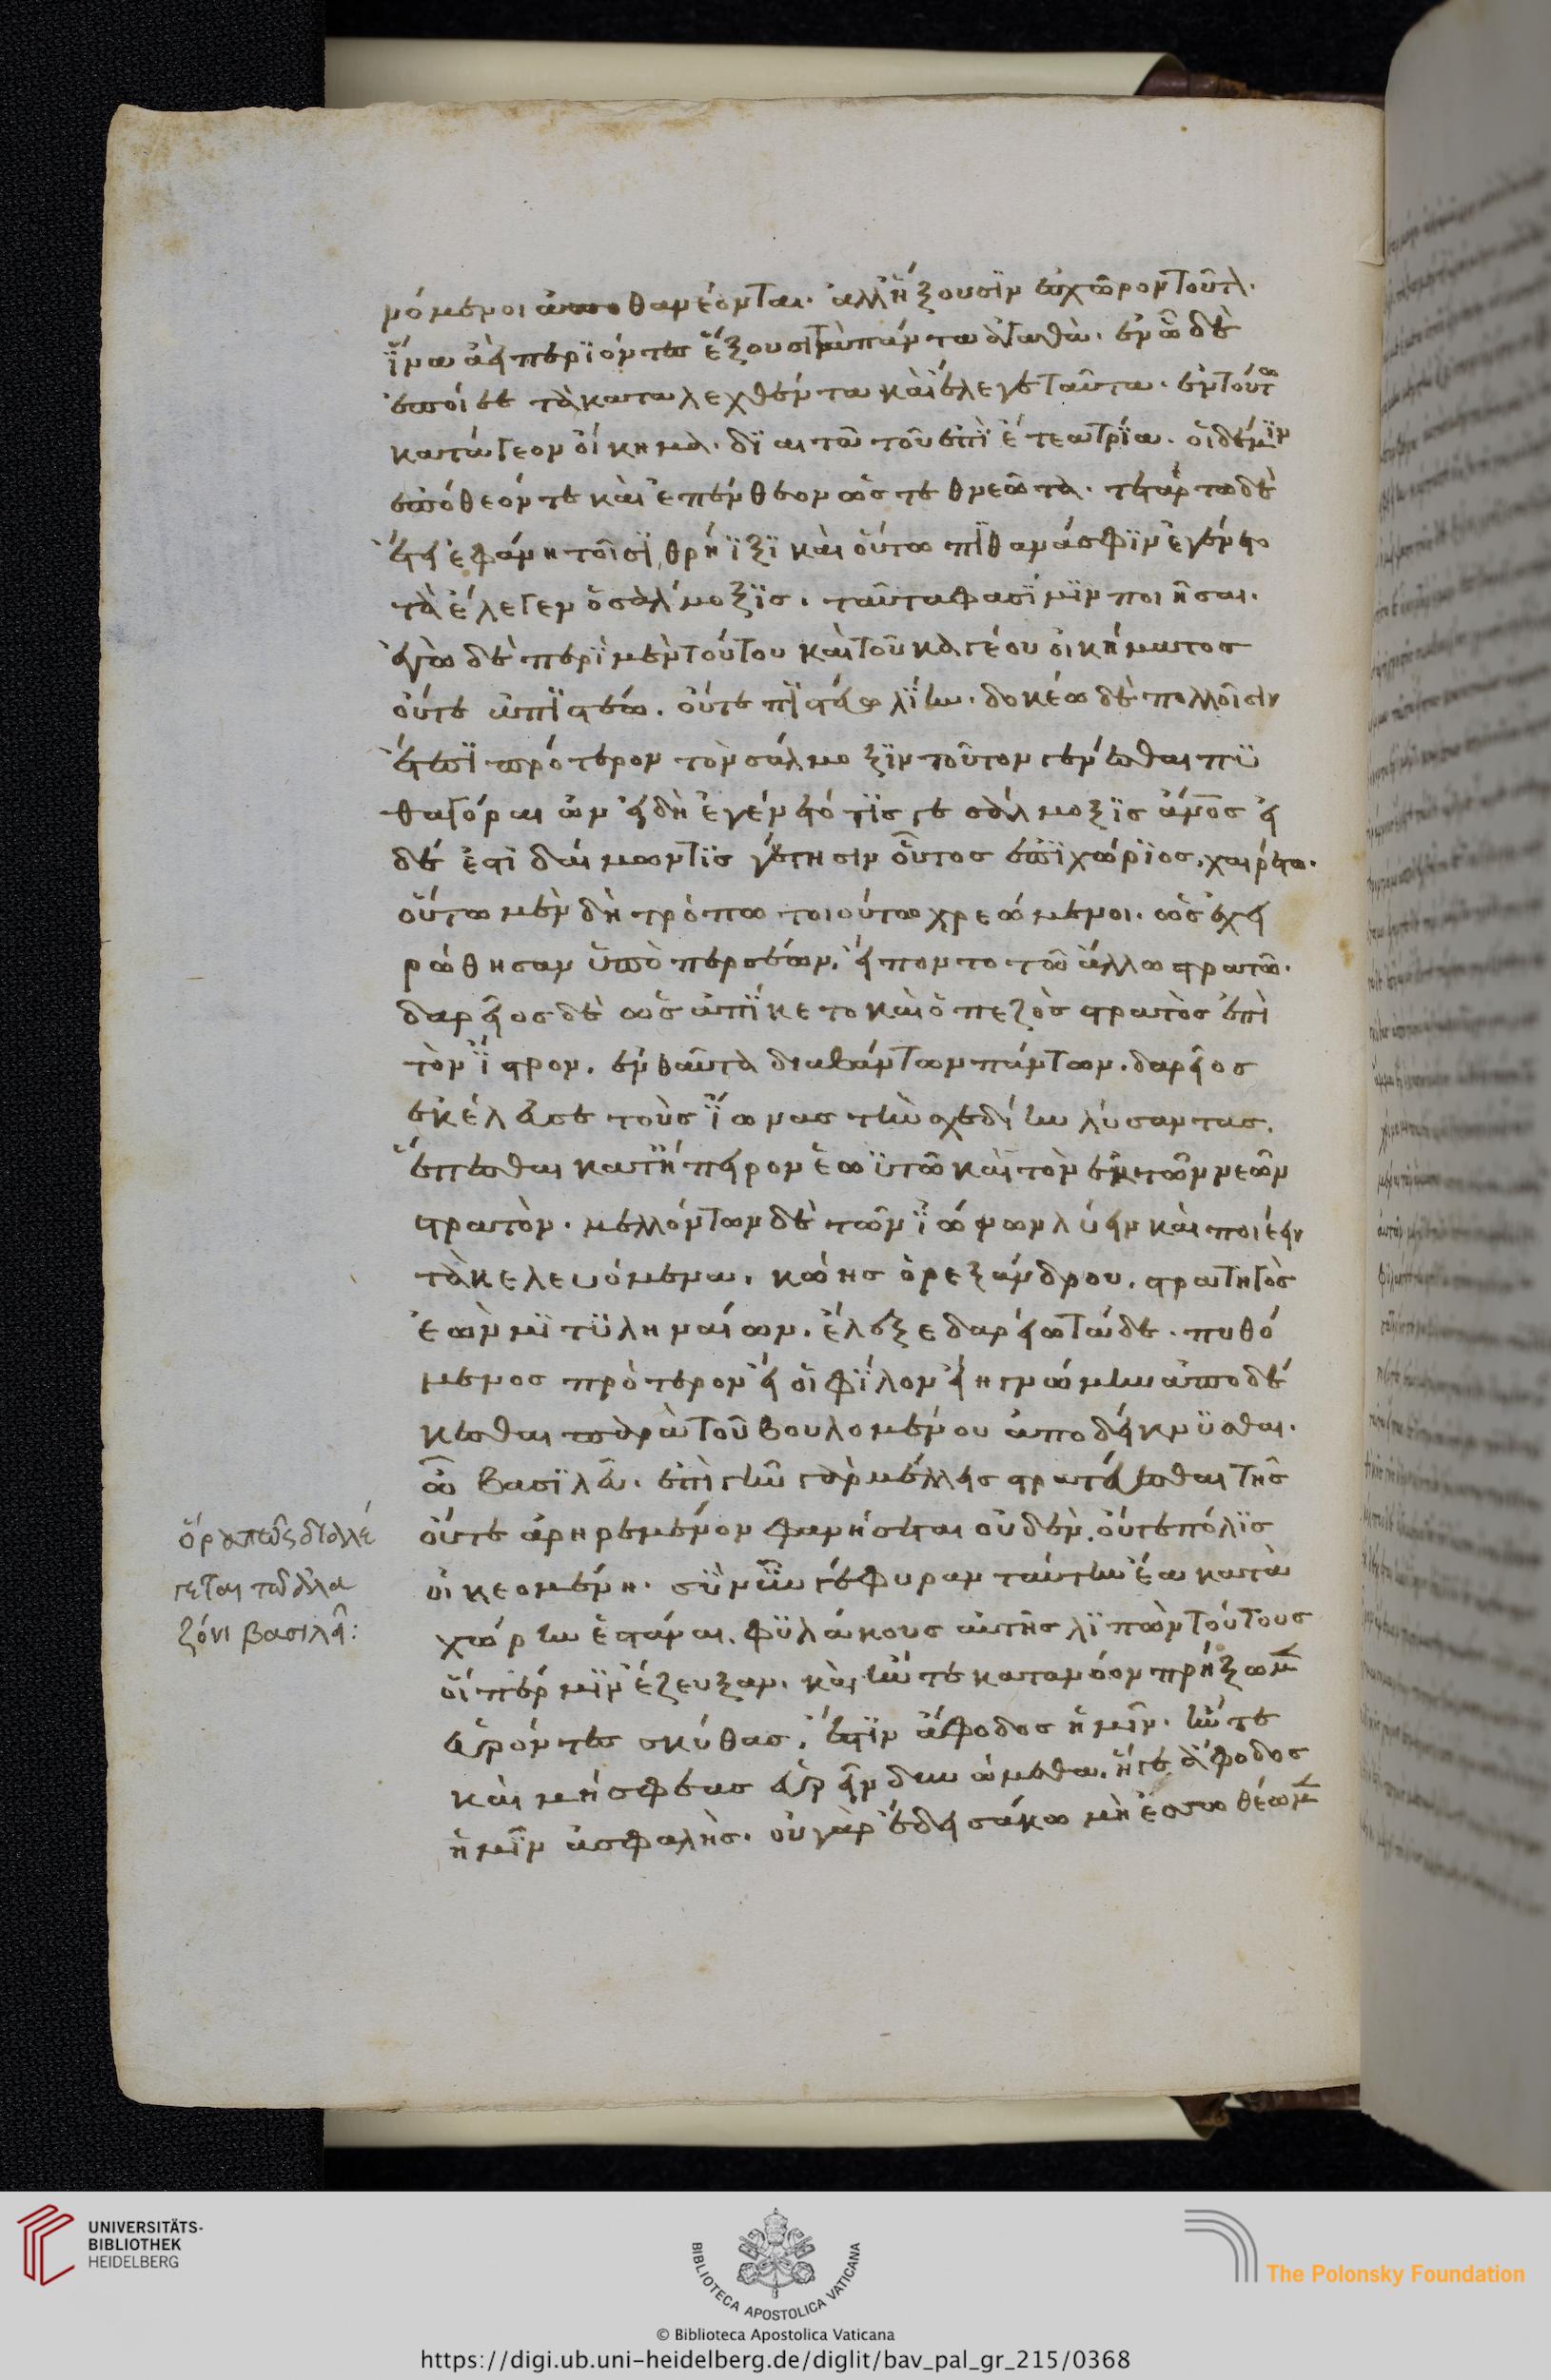 νόμενοι ἀποθανέονται. ἀλλ' ἥξουσϊν ἐς χῶρον τοῦτον.
ἵνα ἀεὶ περϊόντες ἕξουσι τὰ πάντα ἀγαθά. ἐν ᾧ δὲ
ἐποίεε τὰ καταλεχθέντα καὶ ἔλεγε ταῦτα. ἐν τούτω
κατάγεον οἴκημα. δϊαιτᾶ τοῦ ἐπὶ ἔτεα τρία. οἱ δέ μϊν
ἐπόθεόν τε καὶ ἐπένθεον ὥς τεθνεῶτα. τετάρτω δὲ
ἔτει ἐφάνη τοῖσι θρήϊξϊ καὶ οὕτω πϊθανά σφϊν ἐγένετο
τὰ ἔλεγεν ὁ σάλμοξϊς. ταῦτα φασί μϊν ποιῆσαι.
ἐγὼ δὲ περὶ μὲν τούτου καὶ τοῦ καταγέου οἰκήματος
οὔτε ἀπϊστέω. οὔτε πϊστεύω λίην. δοκέω δὲ πολλοῖσιν
ἔτεσϊ πρότερον τὸν σάλμοξϊν τοῦτον γενέσθαι πϋ
θαγόραι ὢν εἰ δὴ ἐγένετό τϊς γε σάλμοξϊς ἄνος εἴ
δέ ἐστὶ δαίμων τϊς γέτησιν οὗτος ἐπϊχώρϊος. χαιρέτω.
οὕτω μὲν δὴ τρόπω τοιούτω χρεώμενοι. ὡς ἐχει
ρώθησαν ὑπὸ περσέων. εἵποντο τῶ ἄλλω στρατῶ.
δαρεῖος δὲ ὡς ἀπίκετο καὶ ὁ πεζὸς στρατὸς ἐπὶ
τὸν ἴστρον. ἐνθαῦτα διαβάντων πάντων. δαρεῖος
ἐκέλευσε τοὺς ἴωνας τὴν σχεδίην λύσαντας.
ἕπεσθαι κατ' ἤπειρον ἑωϋτῶ καὶ τὸν ἐκ τῶν νεῶν
στρατὸν. μελλόντων δὲ τῶν ἰώνων λύειν καὶ ποιέειν
τὰ κελευόμενα. κώης ὁ ρεξάνδρου. στρατηγὸς
ἐὼν μϊτϋληναίων. ἔλεξε δαρείω τάδε. πυθό
μενος πρότερον εἴ οἱ φίλον εἴη γνώμην ἀποδέ
κεσθαι παρὰ τοῦ βουλομένου ἀποδείκνϋσθαι.
ὦ βασϊλεῦ. ἐπὶ γῆν γὰρ μέλλεις στρατεύεσθαι τῆς
οὔτε ἀρηρεμένον φανήσεται οὐδὲν. οὔτε πόλϊς
οἰκεομένη. σὺ νῦν γέφυραν ταύτην ἔα κατὰ
χώρην ἑστάναι. φϋλάκους αὐτῆς λϊπὼν τούτους
οἵπερ μϊν ἔζευξαν. καὶ ἤν τε κατανόον πρήξωμεν
εὑρόντες σκύθας. ἔστϊν ἄφοδος ἡμῖν. ἤν τε
καὶ μή σφεας εὑρεῖν δυνώμεθα. ἥ γε ἄφοδος
ἡμῖν ἀσφαλὴς. οὐ γὰρ ἔδεισά κω μὴ ἐσσωθέωμεν
ὅρα πῶς διαλέ
γεται τῶ ἀλα
ζόνι βασιλεῖ:
UNIVERSITÄTS-
BIBLIOTHEK
HEIDELBERG
BIBLIOTECA APOSTOLICA VATICANA
© Biblioteca Apostolica Vaticana
The Polonsky Foundation
https://digi.ub.uni-heidelberg.de/diglit/bav_pal_gr_215/0368